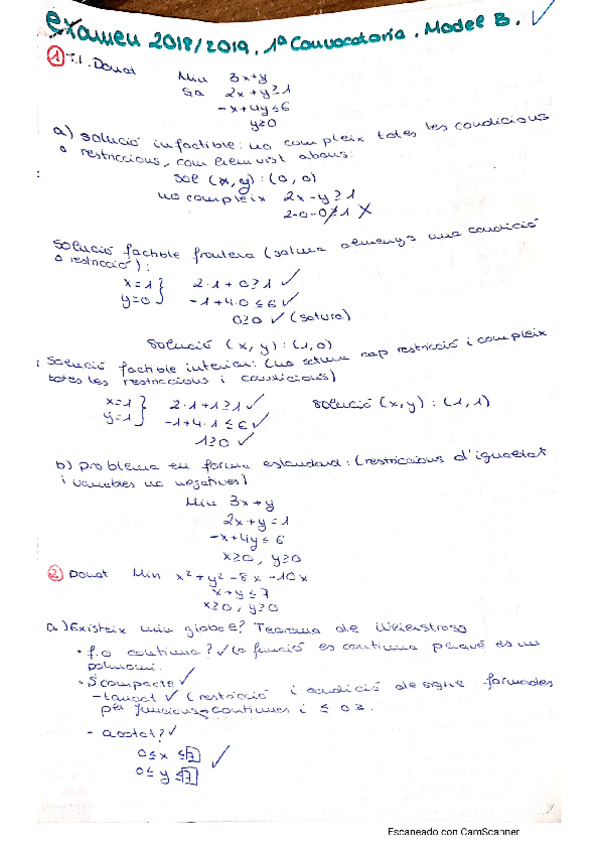 Examen 2018/2019, 1ª Convocatoria. Model B. ✓
① T.1. Donat Min 3x+y
Sa 2x+y≥1
-x+4y≤6
y≥0
a) Solució infactible: no compleix totes les condicions
o restriccions, com hem vist abans:
Sol (x,y) : (0,0)
no compleix 2x-y≥1
2·0-0≱1 X
Solució factible frontera (satura almenys una condició
o restricció):
x=1 } 2·1+0≥1 ✓
y=0 } -1+4·0≤6 ✓
0≥0 ✓ (satura)
Solució (x,y) : (1,0)
Solució factible interior: (no satura cap restricció i compleix
totes les restriccions i condicions)
x=1 } 2·1+1≥1 ✓ Solució (x,y) : (1,1)
y=1 } -1+4·1≤6 ✓
1≥0 ✓
b) Problema en forma estandard: (restriccions d'igualtat
i variables no negatives)
Min 3x+y
2x+y=1
-x+4y≤6
x≥0, y≥0
② Donat Min x²+y²-8x-10x
x+y≤7
x≥0, y≥0
a) Existeix min global? Teorema de Weierstrass
• f.o continua? ✓ la funció es continua perquè es un
polinomi.
• S compacte ✓
- tancat ✓ (restricció i condició de signe formades
per funcions continues i ≤ o ≥.
- acotat? ✓
0≤x≤7 ✓
0≤y≤7
Escaneado con CamScanner